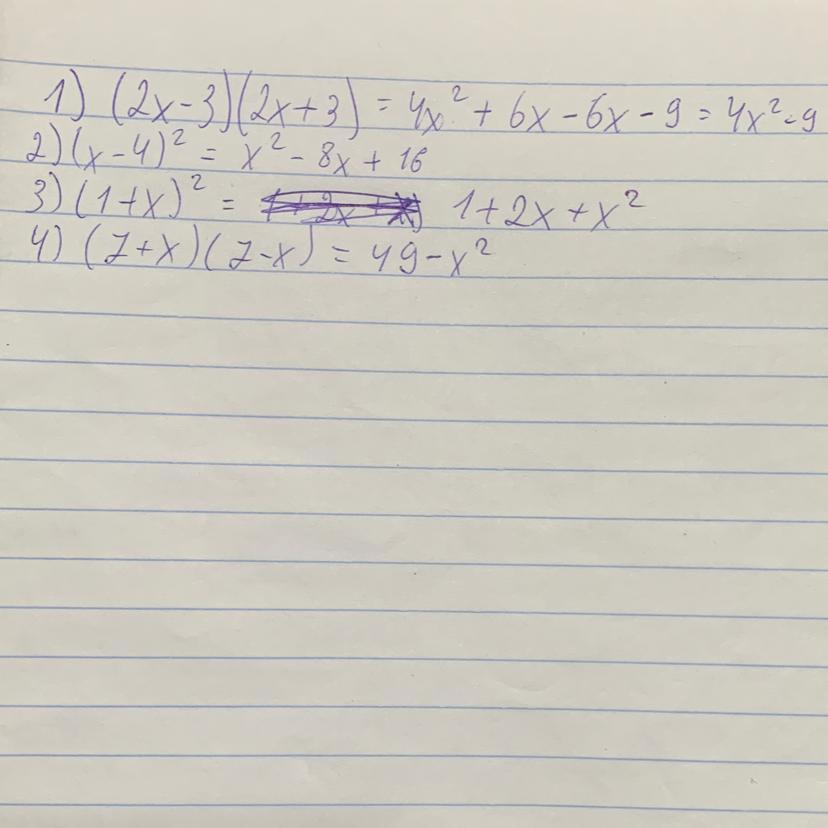 1) (2x-3)(2x+3) = 4x² + 6x - 6x - 9 = 4x² - 9
2) (x-4)² = x² - 8x + 16
3) (1+x)² = 1+2x+x²
4) (7+x)(7-x) = 49-x²